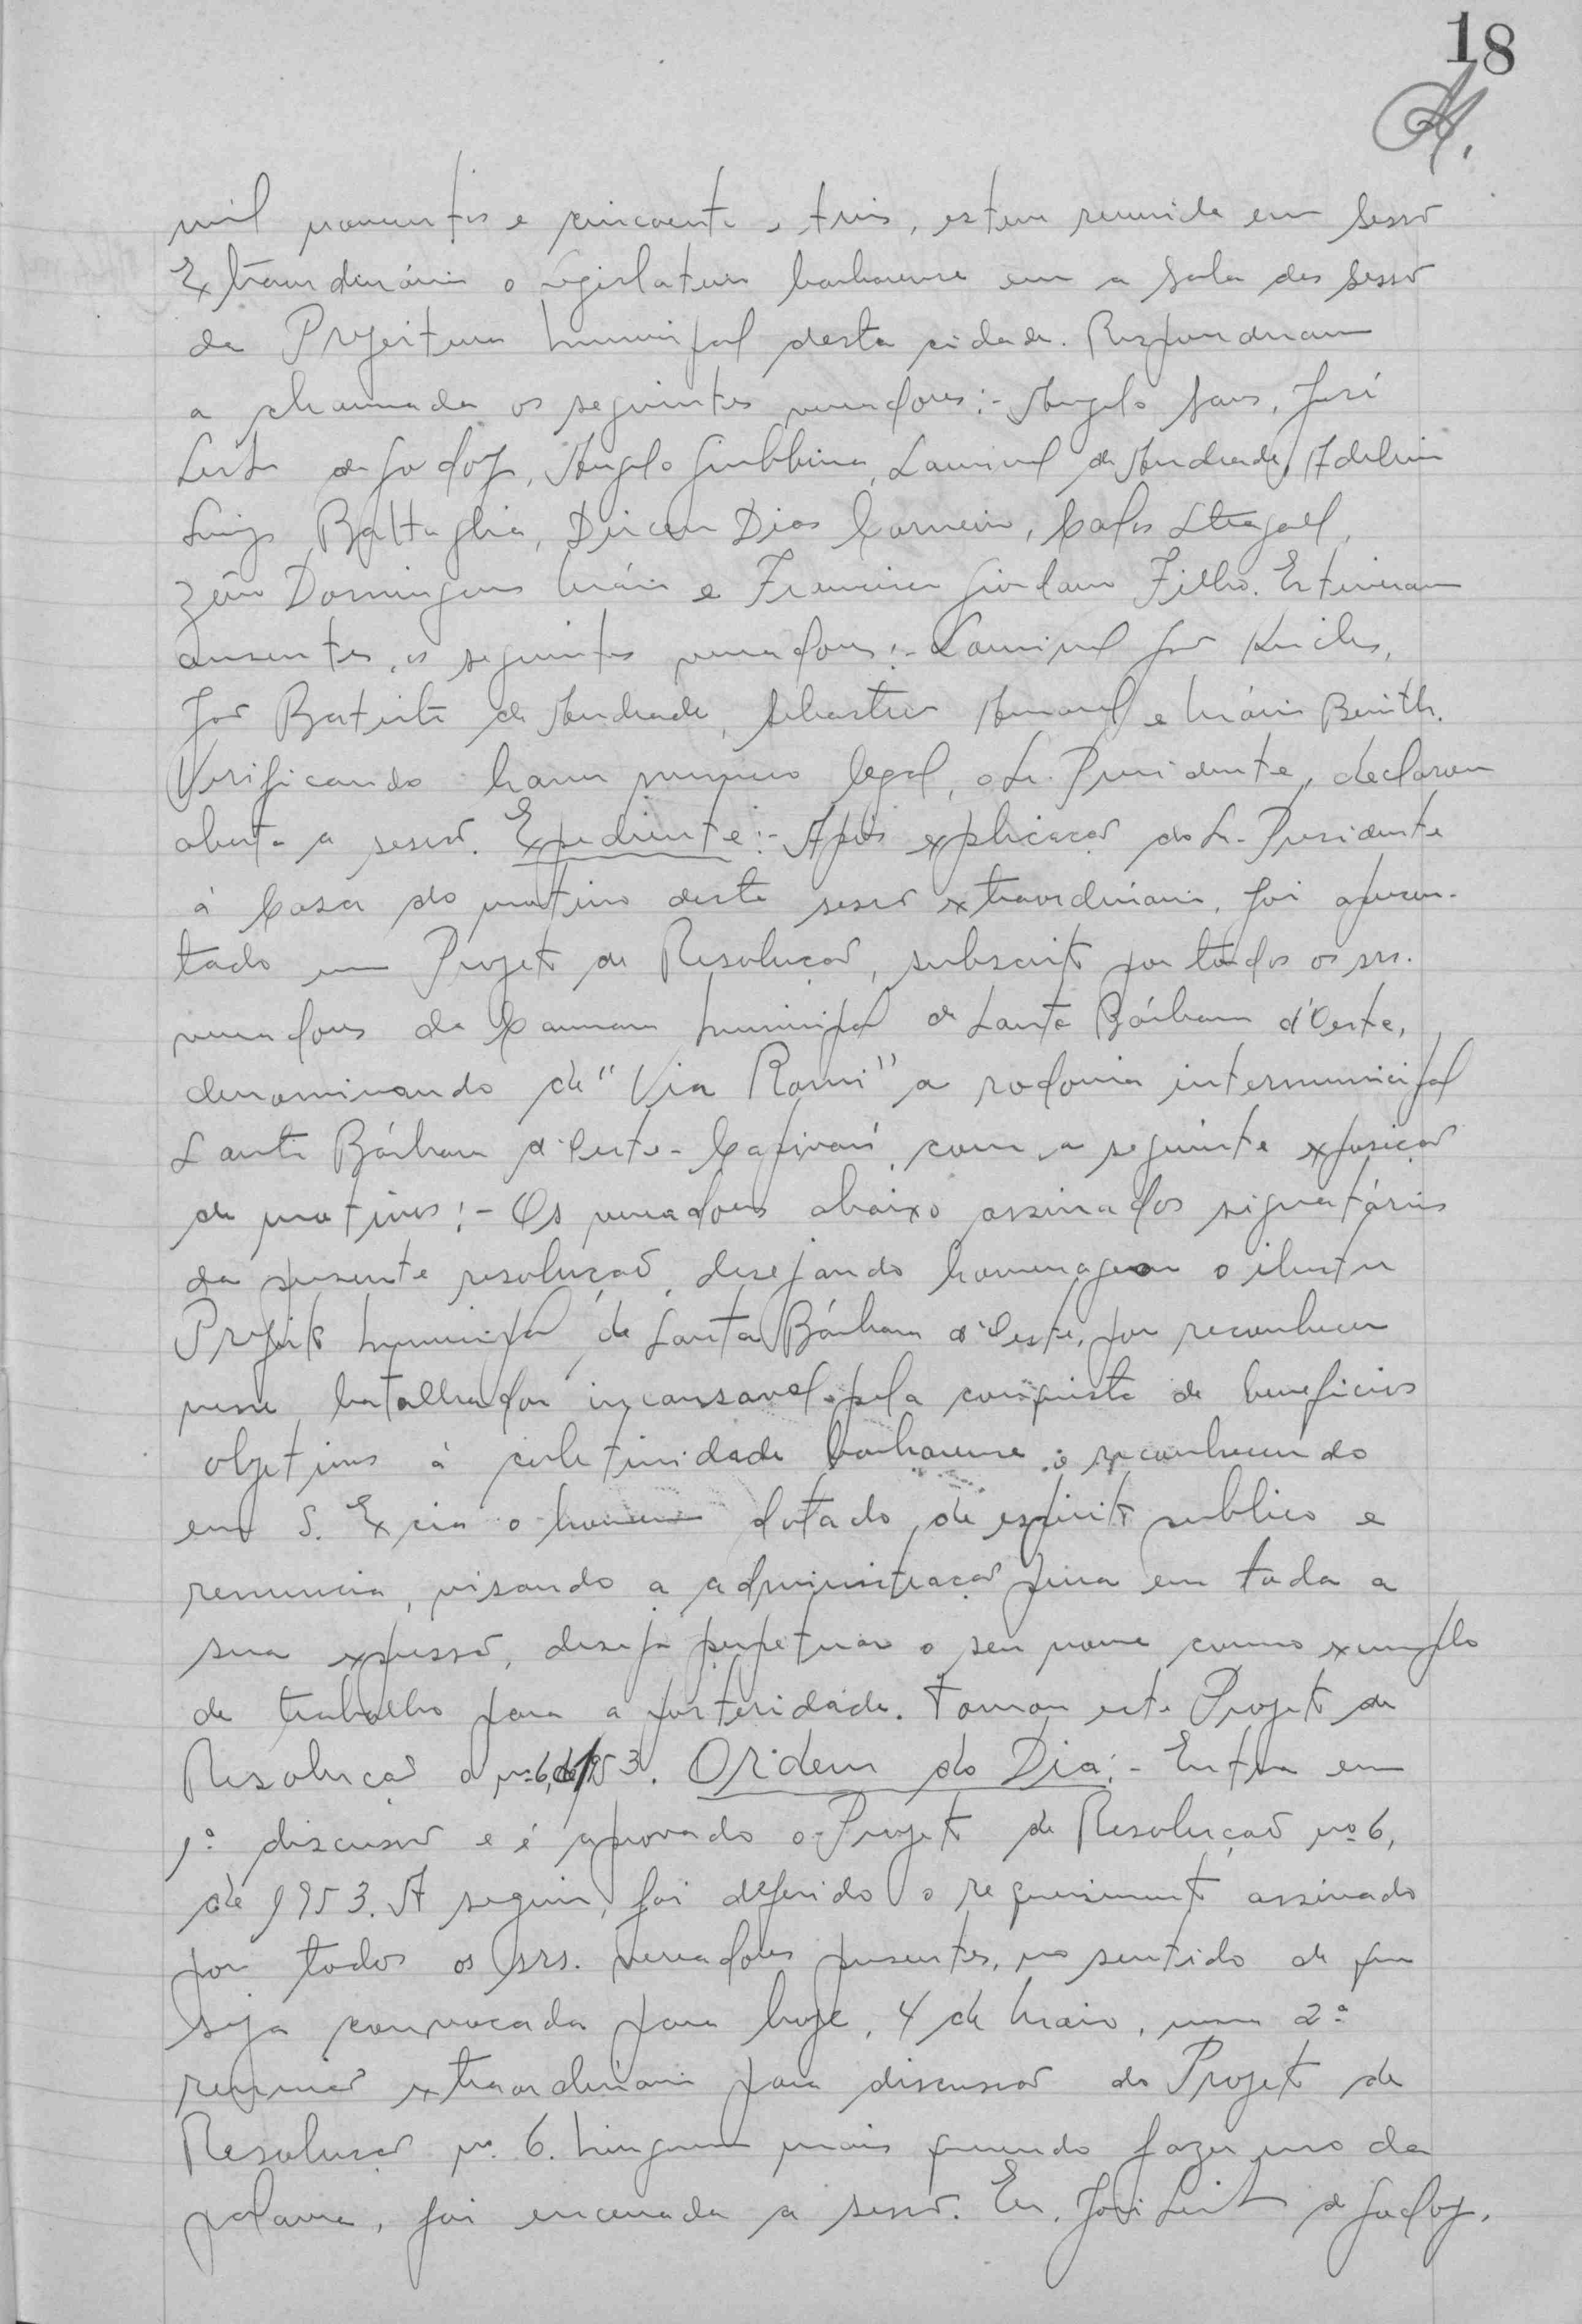 18
mil novecentos e cincoenta e tres, esteve reunida em Sessão
Extraordinária o legislativo barbarense em a sala das sessões
da Prefeitura Municipal desta cidade. Responderam
a chamada os seguintes vereadores:- Angelo Sans, José
Leite de Godoy, Angelo Giubbina, Laurival de Andrade, Adelino
Luiz Battaglia, Dirceu Dias Carneiro, Carlos Steagall,
Zêno Domingues Maia e Francisco Giordano Filho. Estiveram
ausentes, os seguintes vereadores:-
João Batista de Andrade, Sebastião Amaral e Mário
Verificando haver numero legal, o Sr. Presidente, declarou
aberta a sessão. Expediente:- Após explicação do Sr. Presidente
à Casa do motivo desta sessão extraordinária, foi apresen-
tado um Projeto de Resolução, subscrito por todos os srs.
vereadores da Camara Municipal de Santa Bárbara d'Oeste,
denominando de "Via Romi" a rodovia intermunicipal
Santa Bárbara d'Oeste-Capivarí, com a seguinte exposição
de motivos:- Os vereadores abaixo assinados signatários
da presente resolução, desejando homenagear o ilustre
Prefeito Municipal de Santa Bárbara d'Oeste, por reconhecer
nesse batalhador incansavel pela conquista de beneficios
objetivos à coletividade barbarense e reconhecendo
em S. Excia o homem dotado de espirito publico e
renuncia, visando a administração pura em toda a
sua expressão, deseja perpetuar o seu nome como exemplo
de trabalho para a posteridade. Tomou este Projeto de
Resolução o nº 6, de 1953. Ordem do Dia:- Entra em
1ª discussão e é aprovado o Projeto de Resolução nº 6,
de 1953. A seguir, foi deferido o requerimento assinado
por todos os srs. vereadores presentes, no sentido de que
seja convocada para hoje, 4 de Maio, uma 2ª
reunião extraordinaria para discussão do Projeto de
Resolução nº 6. Ninguem mais querendo fazer uso da
palavra, foi encerrada a sessão. Eu, José Leite de Godoy,